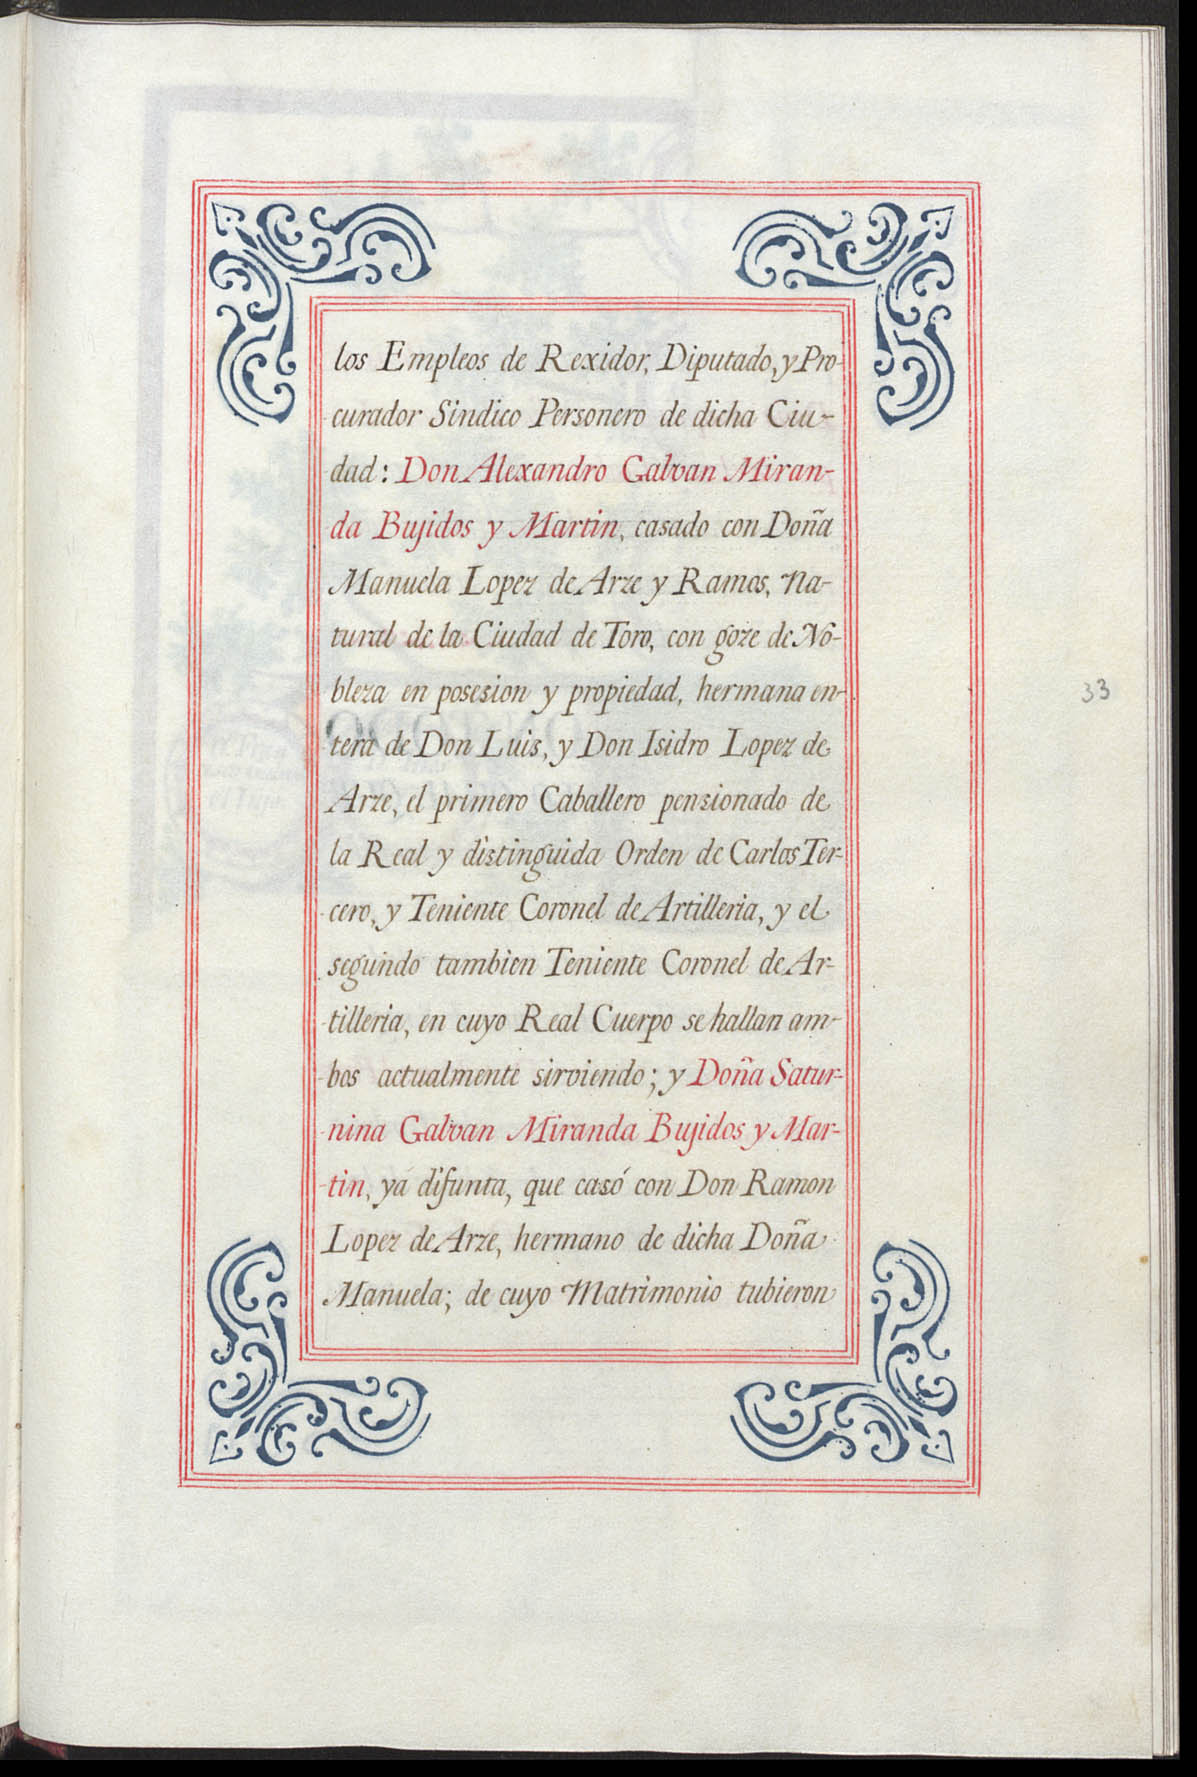 los Empleos de Rexidor, Diputado, y Pro-
curador Sindico Personero de dicha Ciu-
dad: Don Alexandro Galvan Miran-
da Bujidos y Martin, casado con Doña
Manuela Lopez de Arze y Ramos, Na-
tural de la Ciudad de Toro, con goze de No-
bleza en posesion y propiedad, hermana en-
tera de Don Luis, y Don Isidro Lopez de
Arze, el primero Caballero pensionado de
la Real y distinguida Orden de Carlos Ter-
cero, y Teniente Coronel de Artilleria, y el
segundo tambien Teniente Coronel de Ar-
tilleria, en cuyo Real Cuerpo se hallan am-
bos actualmente sirviendo; y Doña Satur-
nina Galvan Miranda Bujidos y Mar-
tin, yá difunta, que casó con Don Ramon
Lopez de Arze, hermano de dicha Doña
Manuela; de cuyo Matrimonio tubieron
33